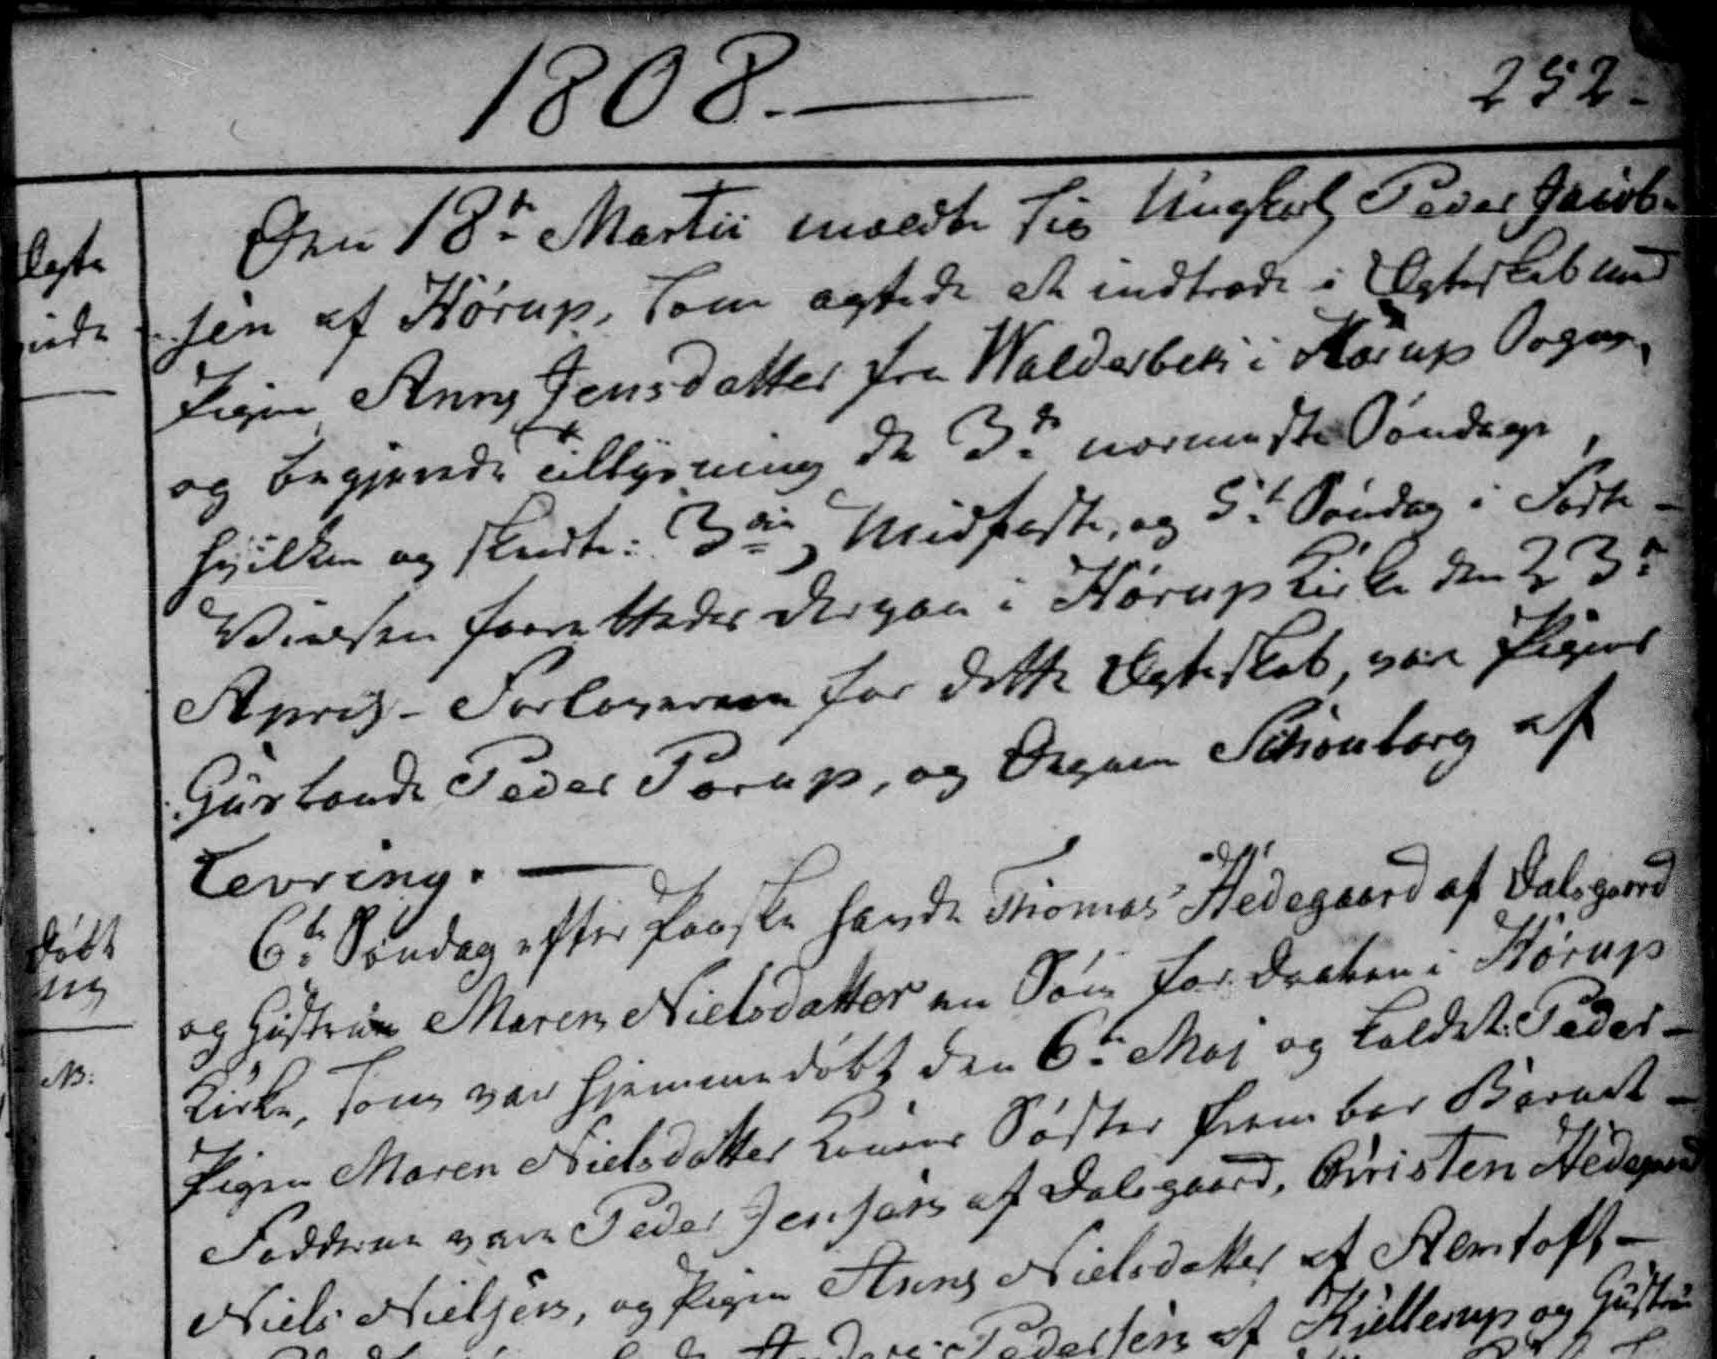 1808. —
252.
Den 18de Martii meldte sig Ungkarl Peder Jacob-
sen af Hørup, som agtede at indtræde i Ægteskab med
Pigen Anne Jensdatter fra Walderbek i Hørup Sogn,
og begjerede tillysning de 3de nærmeste Søndage,
hvilken og skeedte: 3die, Midfaste, og 5te Søndag i Faste-
Vielsen forrettedes derpaa i Hørup Kirke den 23de
April - Forloverne for dette Ægteskab, vare Pigens
Huusbonde Peder Porup, og Degnen Schiönborg af
Levring. —
6te Søndag efter Paaske havde Thomas Hedegaard af Dalsgaard
og Hustrue Maren Nielsdatter en Søn for Daaben i Hørup
Kirke, som var hjemmedøbt den 6te Maj og kaldet: Peder -
Pigen Maren Nielsdatter Konens Søster frembar Barnet -
Fadderne vare Peder Jensen af Dalsgaard, Christen Hedegaard
Niels Nielsen, og Pigen Anne Nielsdatter af Almtoft -
Anders Pedersen af Kjellerup og Hustrue
døbt
NB: